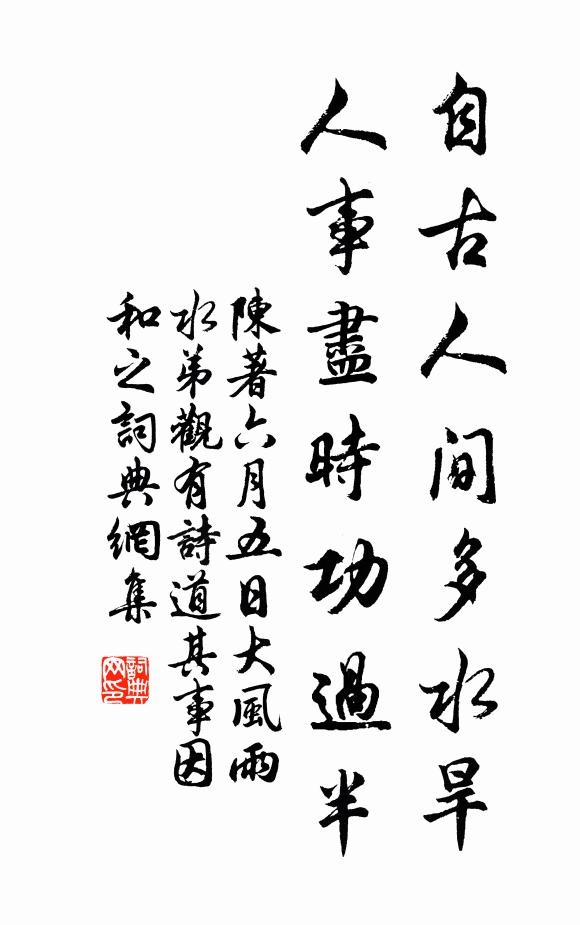 自古人間多水旱
人事盡時功過半
陳著六月五日大風雨
水弟觀有詩道其事因
和之詞典網集
詞典网印